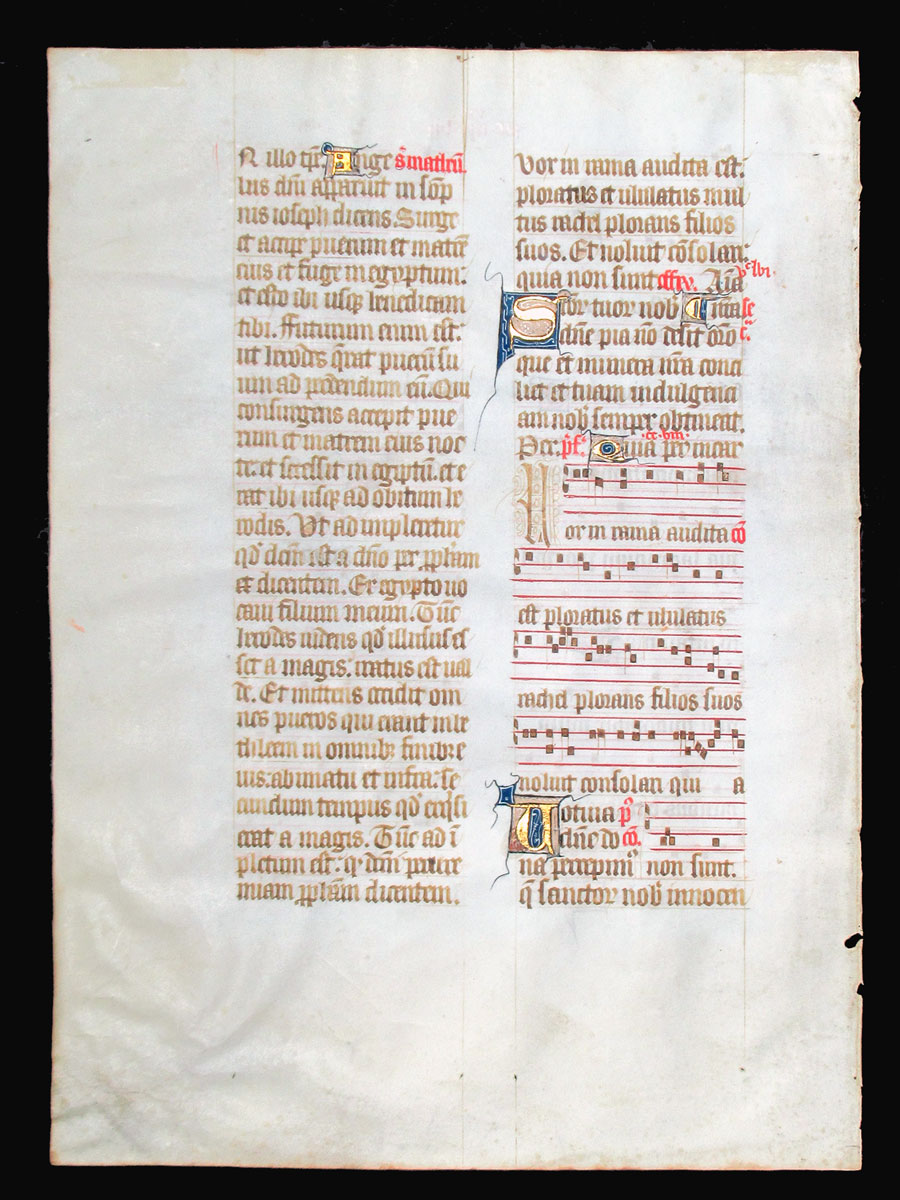 N illo tp̄r. Ange s̄ matheū.
lus dn̄i apparuit in sōp
nis ioseph dicens. Surge
et accipe puerum et matrē
eius et fuge in egyptum:
et esto ibi usq; dum dicam
tibi. Futurum enim est:
ut herodes q̄rat puerū su
um ad perdendum eū. Qui
consurgens accepit pue
rum et matrem eius noc
te: et secessit in egiptū. et e
rat ibi usq; ad obitum he
rodis. Vt ad impleretur
qd̄ dcm̄ est a dn̄o per pp̄ham
dicentem. Ex egypto uo
caui filium meum. Tūc
herodes uidens qd̄ illusus es
set a magis. iratus est ual
de. Et mittens occidit om
nes pueros qui erant in be
thleem in omnib; finib; e
ius: abimatu et infra: se
cundum tempus qd̄ exqsi
erat a magis. Tūc ad ī
pletum est: qd̄ dcm̄ per iere
miam pp̄ham dicentem.
Vox in rama audita est.
ploratus et ululatus mul
tus rachel plorans filios
suos. Et noluit cōsolari:
quia non sunt. offrꝫ. Aīa
scōr tuor nob̄ Intra se
dn̄e pia nō desit orō c̄.
que et munera nr̄a conci
liet et tuam indulgenci
am nob̄ semper obtineat.
Per. pf. Quia per incar
Vox in rama audita cō
est ploratus et ululatus
rachel plorans filios suos
noluit consolari qui a
Uotiua p̄
dn̄e do cō.
na percepim⁹ non sunt.
q̄ sanctor nob̄ innocen